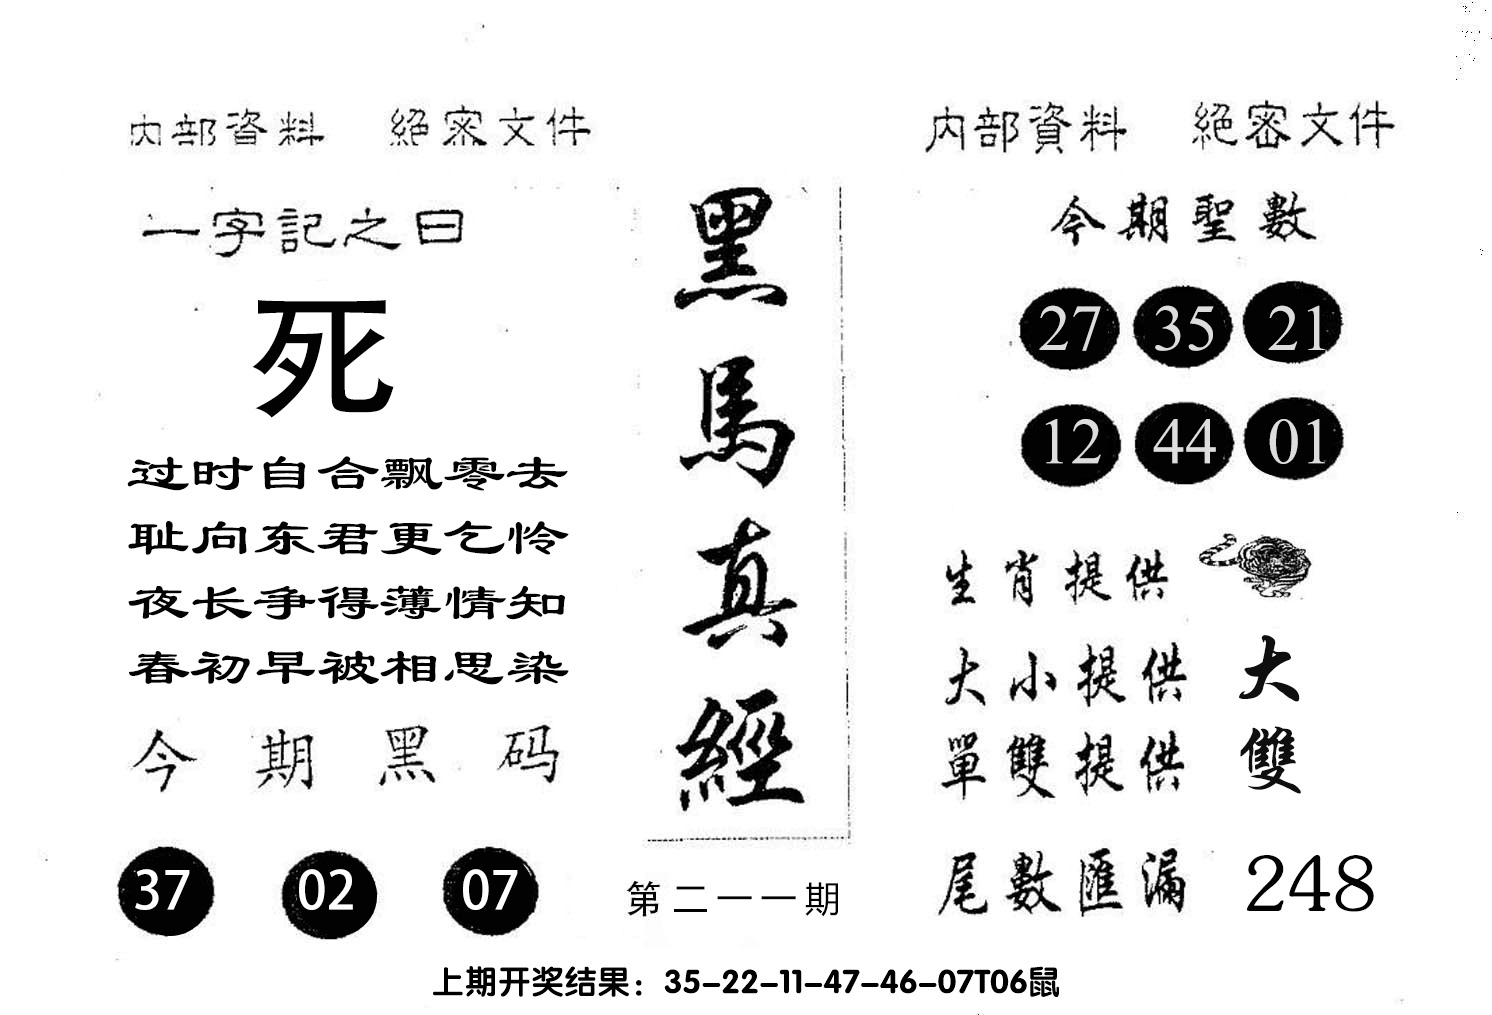 内部資料 絕密文件
一字記之曰
死
过时自合飘零去
耻向东君更乞怜
夜长争得薄情知
春初早被相思染
今期黑码
37 02 07
黑馬真經
第二一一期
内部資料 絕密文件
今期聖數
27 35 21
12 44 01
生肖提供
大小提供 大
單雙提供 雙
尾數匯漏 248
上期开奖结果：35-22-11-47-46-07T06鼠